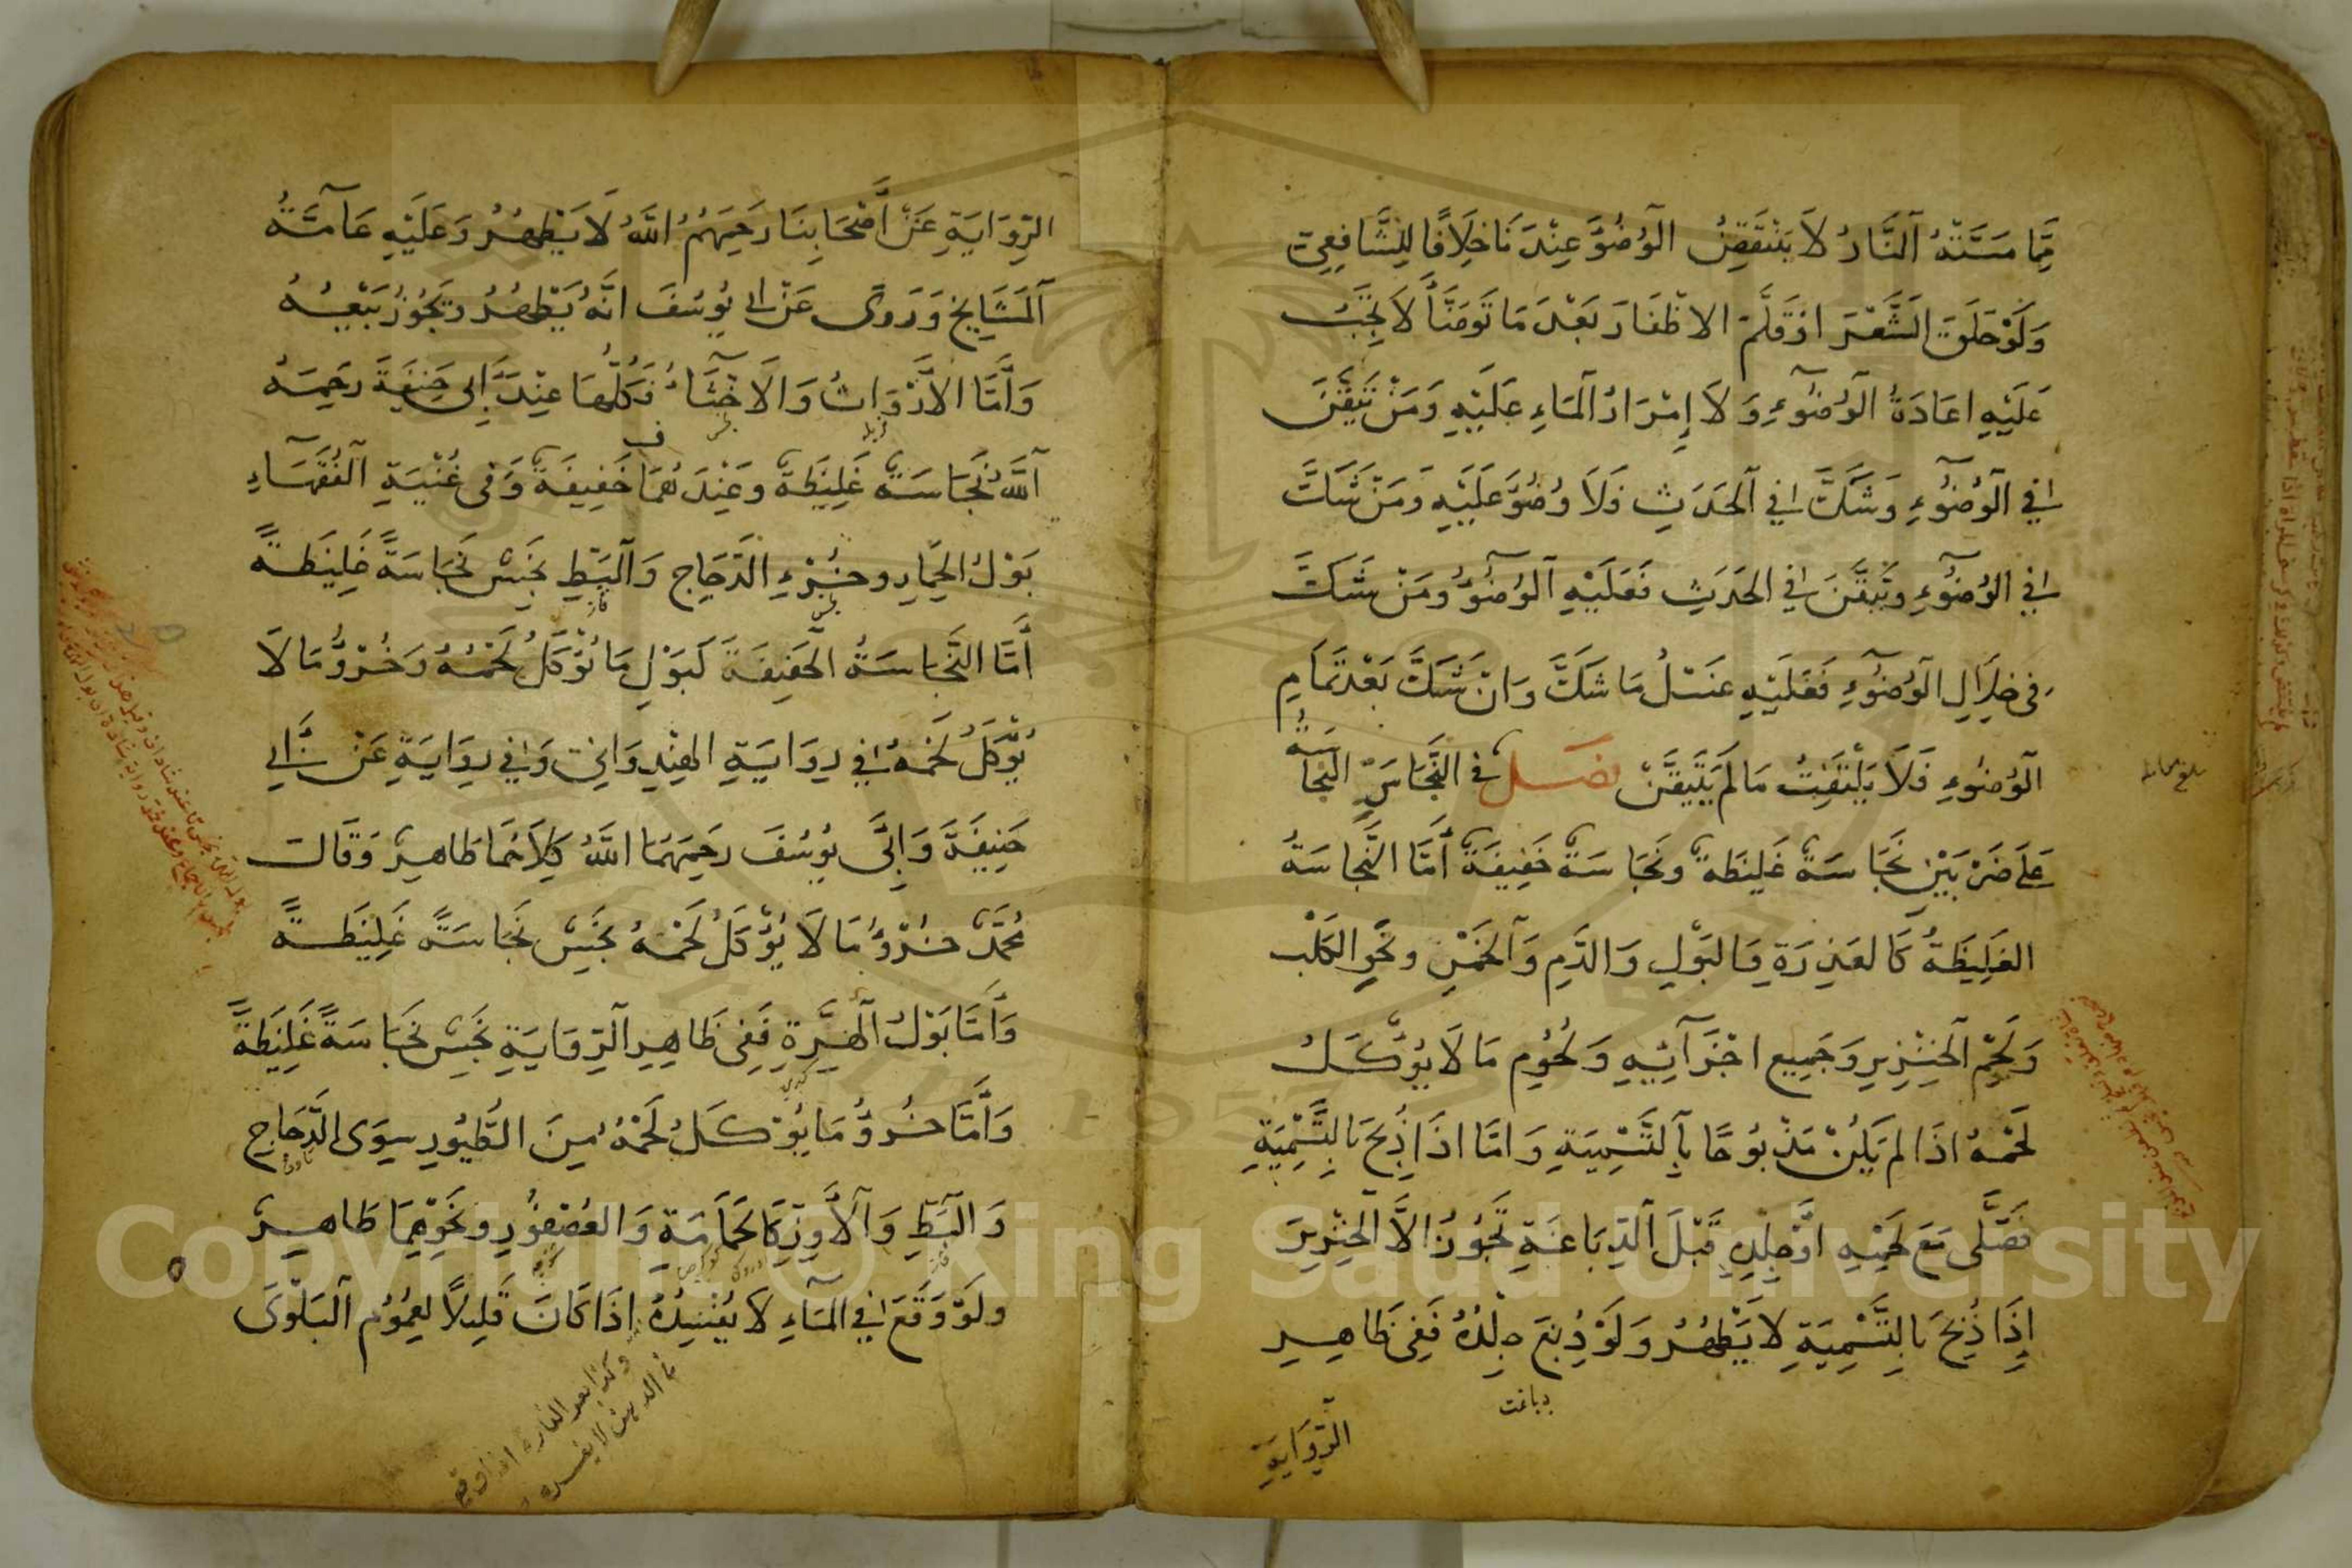 مِمَّا مَسَّتْهُ النَّارُ لَا يَنْتَقِضُ الْوُضُوءُ عِنْدَنَا خِلَافًا لِلشَّافِعِيِّ
وَلَوْ حَلَقَ الشَّعْرَ اَوْ قَلَّمَ الاَظْفَارَ بَعْدَ مَا تَوَضَّأَ لَا يَجِبُ
عَلَيْهِ اِعَادَةُ الْوُضُوءِ وَلَا إِمْرَارُ الْمَاءِ عَلَيْهِ وَمَنْ تَيَقَّنَ
فِي الْوُضُوءِ وَشَكَّ فِي الْحَدَثِ فَلَا وُضُوءَ عَلَيْهِ وَمَنْ شَكَّ
فِي الْوُضُوءِ وَتَيَقَّنَ فِي الْحَدَثِ فَعَلَيْهِ الْوُضُوءُ وَمَنْ شَكَّ
فِي خِلَالِ الْوُضُوءِ فَعَلَيْهِ غَسْلُ مَا شَكَّ وَاِنْ شَكَّ بَعْدَ تَمَامِ
الْوُضُوءِ فَلَا يَلْتَفِتُ مَا لَمْ يَتَيَقَّنْ فصل فِي النَّجَاسَةِ النَّجَاسَةُ
عَلَى ضَرْبَيْنِ نَجَاسَةٌ غَلِيظَةٌ وَنَجَاسَةٌ خَفِيفَةٌ أَمَّا النَّجَاسَةُ
الغَلِيظَةُ كَالعَذِرَةِ وَالبَوْلِ وَالدَّمِ وَالْخَمْرِ وَنَجْوِ الكَلْبِ
وَلَحْمِ الْخِنْزِيرِ وَجَمِيعِ اَجْزَائِهِ وَلُحُومِ مَا لَا يُؤْكَلُ
لَحْمُهُ اِذَا لَمْ يَكُنْ مَذْبُوحًا بِالتَّسْمِيَةِ وَاَمَّا اِذَا ذُبِحَ بِالتَّسْمِيَةِ
فَصَلَّى مَعَ لَحْمِهِ اَوْ جِلْدِهِ قَبْلَ الدِّبَاغَةِ تَجُوزُ اِلَّا الْخِنْزِيرَ
إِذَا ذُبِحَ بِالتَّسْمِيَةِ لَا يَطْهُرُ وَلَوْ دُبِغَ جِلْدُهُ فَفِي ظَاهِرِ
دباغت
الرِّوَايَةِ
الرِّوَايَةِ عَنْ أَصْحَابِنَا رَحِمَهُمُ اللّٰهُ لَا يَطْهُرُ وَعَلَيْهِ عَامَّةُ
الْمَشَايِخِ وَرَوَى عَنْ اَبِي يُوسُفَ اَنَّهُ يَطْهُرُ وَيَجُوزُ بَيْعُهُ
وَأَمَّا الاَرْوَاثُ وَالاَخْثَاءُ فَكُلُّهَا عِنْدَ اَبِى حَنِيفَةَ رَحِمَهُ
اللّٰهُ نَجَاسَةٌ غَلِيظَةٌ وَعِنْدَهُمَا خَفِيفَةٌ وَفِى غُنْيَةِ الْفُقَهَاءِ
بَوْلُ الحِمَارِ وَخُرْءِ الدَّجَاجِ وَالْبَطِّ نَجِسٌ نَجَاسَةً غَلِيظَةً
أَمَّا النَّجَاسَةُ الْخَفِيفَةُ كَبَوْلِ مَا يُؤْكَلُ لَحْمُهُ وَخُرْؤُ مَا لَا
يُؤْكَلُ لَحْمُهُ فِي رِوَايَةِ الهِنْدِوَانِي وَفِي رِوَايَةٍ عَنْ اَبِي
حَنِيفَةَ وَاَبِى يُوسُفَ رَحِمَهُمَا اللّٰهُ كِلَاهُمَا طَاهِرٌ وَقَالَ
مُحَمَّدٌ خُرْؤُ مَا لَا يُؤْكَلُ لَحْمُهُ نَجِسٌ نَجَاسَةً غَلِيظَةً
وَأَمَّا بَوْلُ الْهِرَّةِ فَفِى ظَاهِرِ الرِّوَايَةِ نَجِسٌ نَجَاسَةً غَلِيظَةً
وَأَمَّا خُرْؤُ مَا يُؤْكَلُ لَحْمُهُ مِنَ الطُّيُورِ سِوَى الدَّجَاجِ
وَالْبَطِّ وَالْاَوِزِّ كَالحَمَامَةِ وَالعُصْفُورِ وَنَحْوِهِمَا طَاهِرٌ
وَلَوْ وَقَعَ فِي الْمَاءِ لَا يُفْسِدُهُ اِذَا كَانَ قَلِيلًا لِعُمُومِ الْبَلْوَى
وكذا بعر الفارة اذا وقع
في الدهن لا يفسده
Copyright © King Saud University